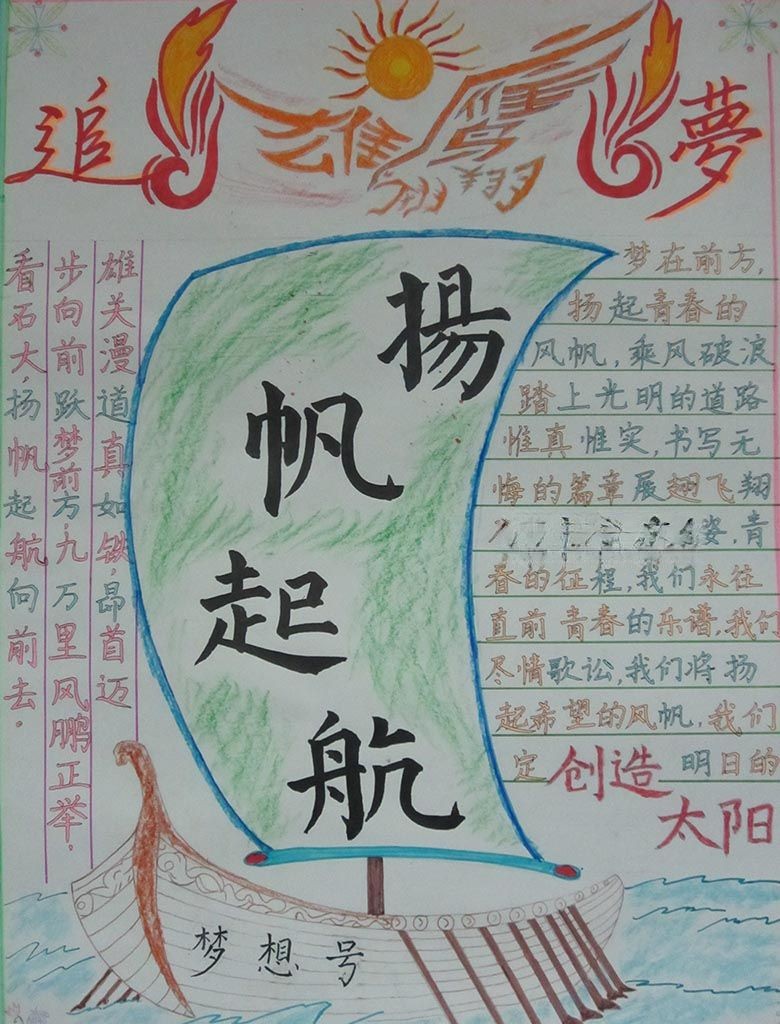 追 雄鹰 夢
揚帆起航
雄关漫道真如铁,昂首迈
步向前跃梦前方,九万里风鹏正举,
看石大,扬帆起航向前去.
梦在前方,
扬起青春的
风帆,乘风破浪
踏上光明的道路
惟真惟实,书写无
悔的篇章展翅飞翔
姿,青
春的征程,我们永往
直前青春的乐谱,我们
尽情歌讼,我们将扬
起希望的风帆,我们
定创造明日的
太阳
梦想号